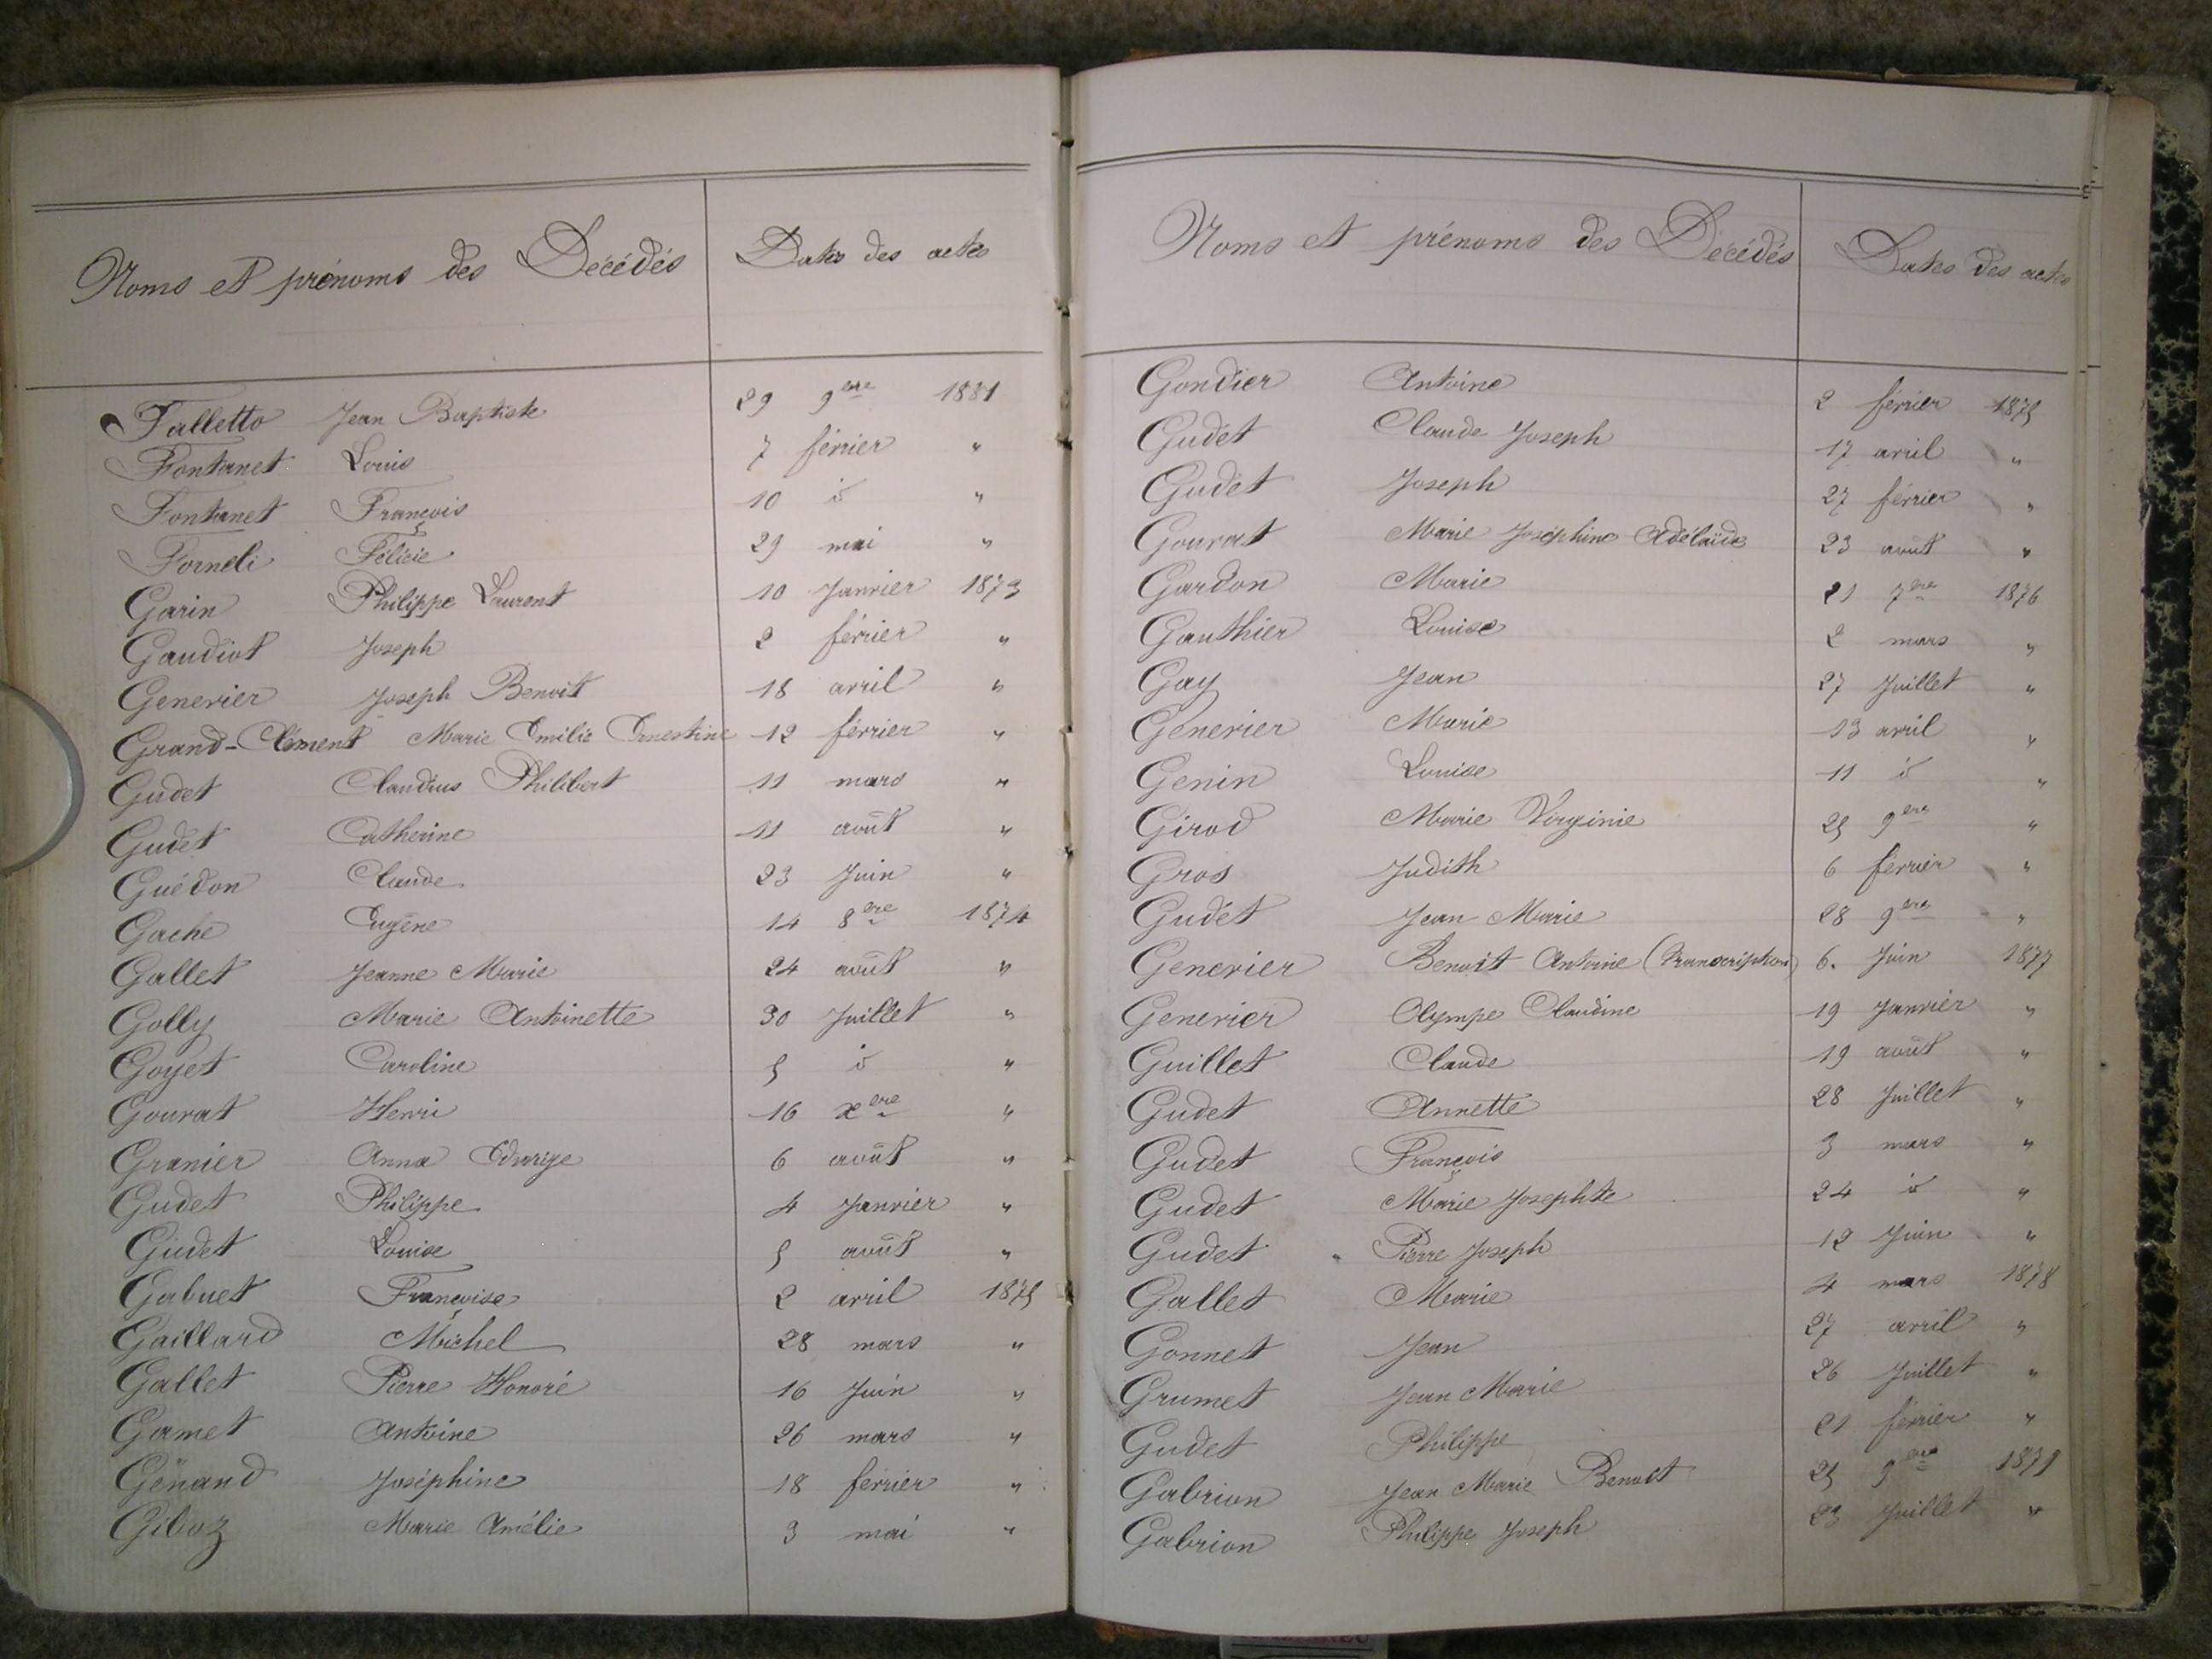 Noms et prénoms des Décédés Dates des actes
Falletto Jean Baptiste 29 9ere 1881
Fontanet Louis 7 février "
Fontanet François 10 id "
Forneli Félicie 29 mai "
Garin Philippe Laurent 10 Janvier 1873
Gaudiot Joseph 2 février "
Genevier Joseph Benoît 18 avril "
Grand-Clément Marie Emilie Ernestine 12 février "
Gudet Claudius Philibert 11 mars "
Gudet Catherine 11 août "
Guédon Claude 23 Juin "
Gache Eugène 14 8ere 1874
Gallet Jeanne Marie 24 août "
Golly Marie Antoinette 30 Juillet "
Goyet Caroline 5 id "
Gourat Henri 16 xere "
Granier Anna Edwige 6 août "
Gudet Philippe 4 Janvier "
Gudet Louise 5 août "
Gabuet Françoise 2 avril 1875
Gaillard Michel 28 mars "
Gallet Pierre Honoré 16 Juin "
Gamet Antoine 26 mars "
Génand Joséphine 18 février "
Giboz Marie Amélie 3 mai "
Noms et prénoms des Décédés Dates des actes
Gondier Antoine 2 février 1875
Gudet Claude Joseph 17 avril "
Gudet Joseph 27 février "
Gourat Marie Joséphine Adélaïde 23 août "
Gardon Marie 21 7ere 1876
Gauthier Louise 2 mars "
Gay Jean 27 Juillet "
Genevier Marie 13 avril "
Genin Louise 11 id "
Girod Marie Virginie 25 9ere "
Gros Judith 6 février "
Gudet Jean Marie 28 9ere "
Genevier Benoît Antoine (Transcription) 6. Juin 1877
Genevier Olympe Claudine 19 Janvier "
Guillet Claude 19 août "
Gudet Annette 28 Juillet "
Gudet François 3 mars "
Gudet Marie Josephte 24 id "
Gudet Pierre Joseph 12 Juin "
Gallet Marie 4 mars 1878
Gonnet Jean 27 avril "
Grumet Jean Marie 26 Juillet "
Gudet Philippe 21 février "
Gabrion Jean Marie Benoît 25 9ere 1879
Gabrion Philippe Joseph 23 Juillet "